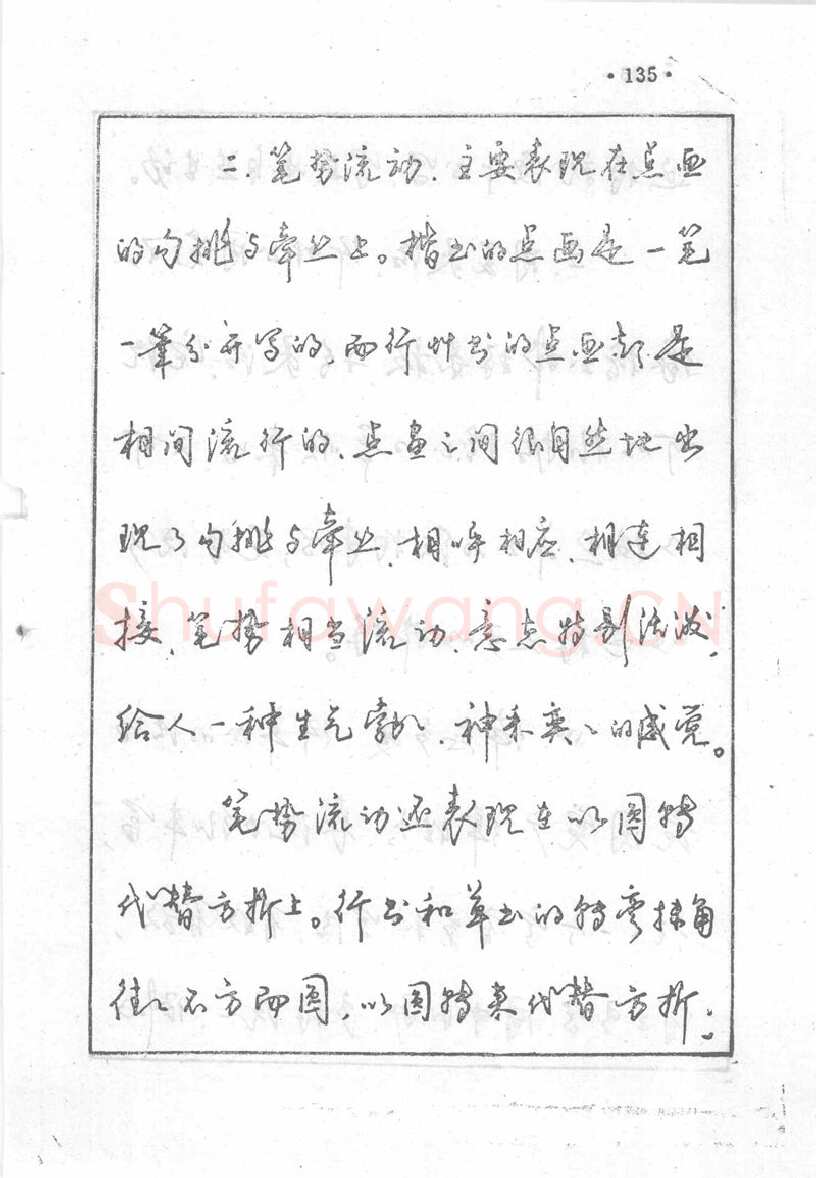 ·135·
二、笔势流动，主要表现在点画
的勾挑与牵丝上。楷书的点画是一笔
一筆分开写的，而行艸书的点画都是
相间流行的，点畫之间很自然地出
现了勾挑与牵丝，相呼相应，相连相
接，笔势相当流动，意态特别活泼，
给人一种生气勃勃、神采奕々的感觉。
笔势流动还表现在以圆转
代替方折上。行书和草书的转弯抹角
往往不方而圆，以圆转来代替方折；
Shufawang.CN